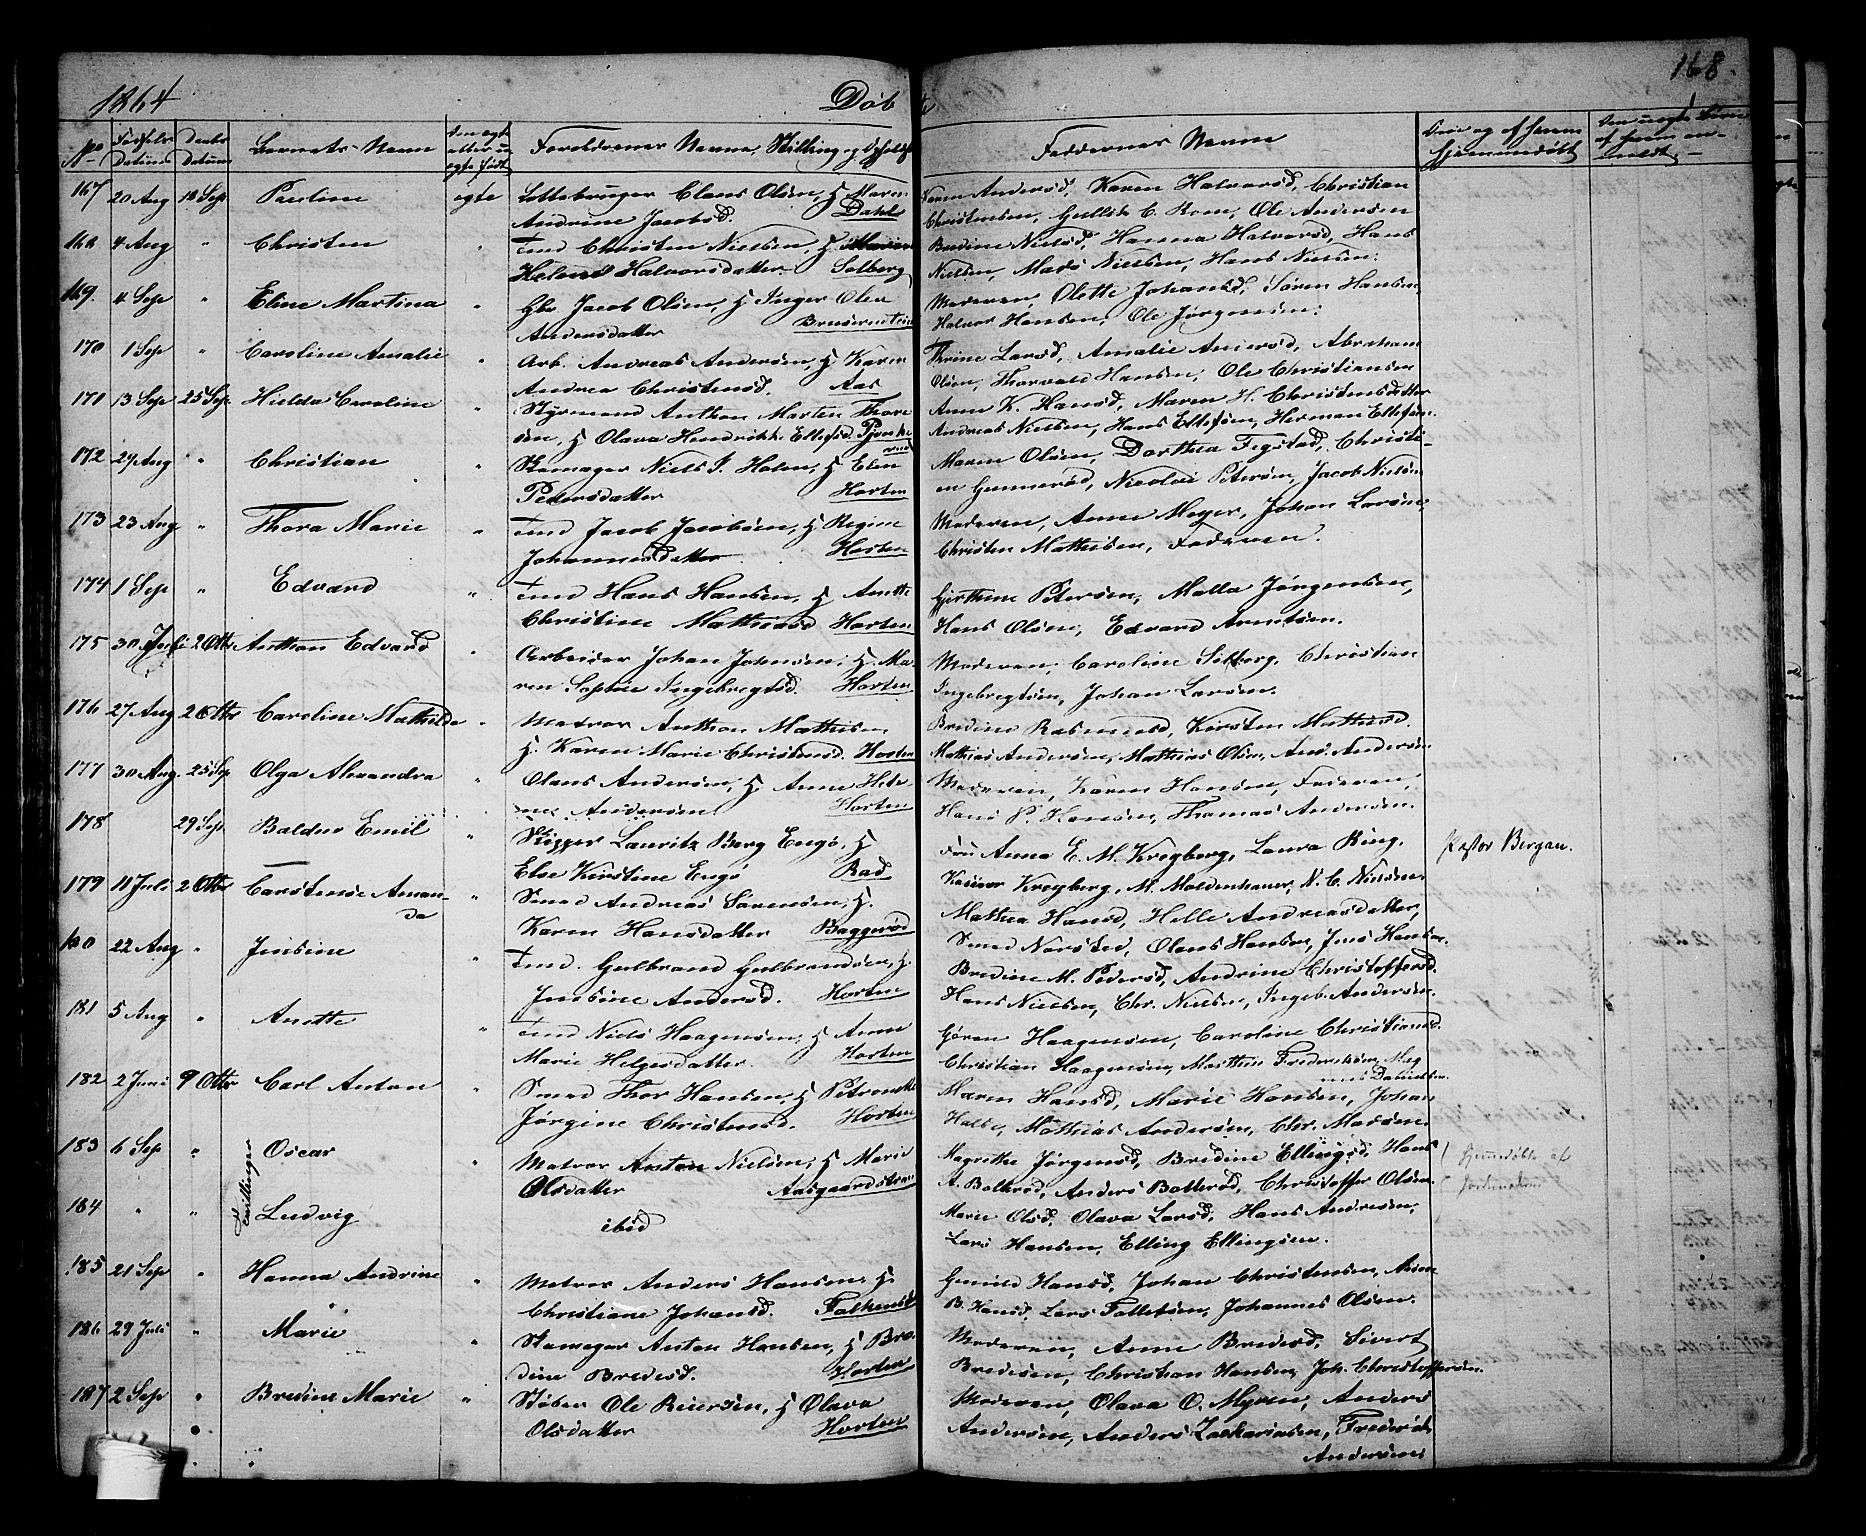 1864 Døbte 168.
No Fødsels Datum Daabs Datum Barnets Navn Om egte eller uegte født Forældrenes Navne, Stilling og Opholdst Faddernes Navne
167 20 Aug 18 Sep Pauline egte Lottebruger Claus Olsen, H Maren
Andrine Jacobsd. Dahls
Karen Andersd, Karen Halvorsd, Christian
Christensen, Gullik C. Rom, Ole Andersen
168 4 Aug " Christen " Tmd Christen Nielsen, H Maren
Helene Halvorsdatter Solberg
Bredine Nielsd, Hanna Halvorsd, Hans
Nielsen, Mads Nielsen, Hans Nielsen.
169. 4 Sep " Eline Martina " Gbr Jacob Olsen, H Inger Olea
Andersdatter
Moderen, Olette Johansd, Søren Hansen,
Halvor Hansen, Ole Jørgensen.
170 1 Sep " Caroline Amalie " Arb. Andreas Andersen, H Karen
Andrea Christensd. Aas
Thrine Larsd, Amalie Andersd, Abraham
Olsen, Thorvald Hansen, Ole Christiansen
171 13 Sep 25 Sep Hilda Caroline " Styrmand Anthon Marten Thore
sen, H Olava Hendrikke Ellefsd.
Anne K. Hansd, Maren H. Christensdatter
Andreas Nielsen, Hans Ellefsen, Herman Ellefsen.
172 27 Aug " Christian " Skomager Niels J. Holen, H Elen
Pedersdatter Horten
Maren Olsen, Dorthea Fegstad, Christi-
an Gunnersd, Nicolai Petersen, Jacob Nielsen
173 23 Aug " Thora Marie " Tmd Jacob Jacobsen, H Regine
Johannesdatter Horten
Moderen, Anne Meyer, Johan Larsen,
Christen Mathisen, Faderen.
174 1 Sep " Edvard " Tmd Hans Hansen, H Anette
Christine Mathiasd Horten
Gjerthine Petersen, Malla Jørgensen,
Hans Olsen, Edvard Arntsen.
175 30 Juli 2 Otbr Anthon Edvard " Arbeider Johan Johnsen, H. Ma-
ren Sophie Ingebregtsd. Horten
Moderen, Caroline Solberg, Christian
Ingebregtsen, Johan Larsen.
176 27 Aug 2 Otbr Caroline Mathilde " Matros Anthon Mathisen
H. Karen Marie Christensd. Horten
Bredine Rasmusd, Kirsten Mathisd.
Mathias Andersen, Mathias Olsen, And. Andersen
177 30 Aug 25 Sep Olga Alexandra " Olaus Andersen, H. Anne Hele
ne Andersen Horten
Moderen, Karen Hansen, Faderen,
Hans P. Hansen, Thomas Andersen.
178 29 Sep Balder Emil " Skipper Lauritz Berg Engø, H
Else Kirstine Engø Rad
Fru Anna E. M. Kregberg, Laura Ring,
Kregberg, M. Moldenhauer, N. C. Nielsen.
Pastor Bergan.
179 18 Juli 2 Otbr Carstense Aman-
da " Smed Andreas Sørensen, H.
Karen Hansdatter Baggerød
Mathea Hansd, Helle Andreasdatter,
Smed Norsted, Olaus Hansen, Jens Hansen.
180 22 Aug " Jensine " Tmd. Gulbrand Gulbrandsen, H.
Jensine Andersd. Horten
Bredine M. Pedersd, Andrine Christoffersd.
Hans Nielsen, Chr. Nielsen, Ingeb. Andersen.
181 5 Aug " Anette " Tmd Niels Haagensen, H Anne
Marie Helgesdatter. Horten
Gøren Haagensen, Caroline Christiansd.
Christian Haagensen, Mathis Frederiksen, Mag
nus Danielsen.
182 2 Juni 9 Otbr Carl Anton " Smed Thor Hansen, H Petronelle
Jørgine Christensd. Horten
Maren Hansd, Marie Hansen, Johan
Halse, Mathias Andersen, Chr. Madsen.
183 6 Sep " Tvillinger Oscar " Matros Anton Nielsen, H Marie
Olsdatter Aasgaardstran
Magrethe Jørgensd, Bredine Ellingsd, Hans
A. Bollerød, Anders Bollerød, Christoffer Olsen.
Hjemdøbte af
184 " " Ludvig ibid
Marie Olsd, Olava Larsd, Hans Andresen,
Lars Hansen, Elling Ellingsen.
185 21 Sep " Hanna Andrine " Matros Anders Hansen, H.
Christiane Johansd. Falkensten
Gunild Hansd, Johan Christensen, Anne
B. Hansd, Lars Tollefsen, Johannes Olsen.
186 29 Juli " Marie " Skomager Anton Hansen, H Bre
dine Bredesd. Horten
Moderen, Anne Bredesd, Sivert
Bredesen, Christian Hansen, Joh. Christoffersen.
187 2 Sep " Bredine Marie " Støber Ole Reiersen, H Olava
Olsdatter Horten
Moderen, Olava O. Myren, Anders
Andersen, Anders Zachariasen, Fredrik
Andersen